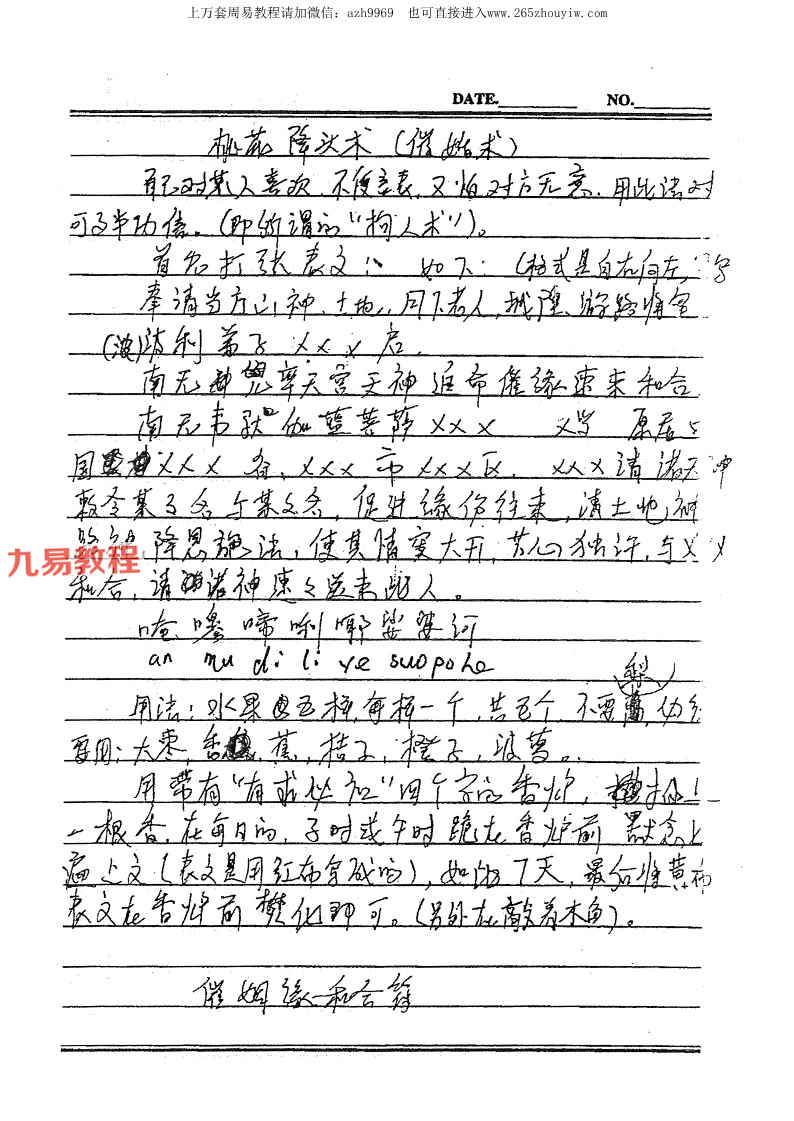 上万套周易教程请加微信：azh9969 也可直接进入www.265zhouyiw.com
DATE. NO.
桃花降头术（催婚术）
自己对某人喜欢，不便主表，又怕对方无意，用此法对
可事半功倍。（即所谓的"拘人术"）。
首先打张表文： 如下：（格式是自右向左，
奉请当方山神、土地、月下老人，城隍、游路将军
弟子XXX启，
南无兜率天宫天神 催缘速来和合
南无韦驮伽蓝菩萨XXX 原居
国 XXX省，XXX市XXX区，XXX请诸天神
敕令某子名与某女名，促进缘份往来，请土地神
降恩施法，使其情窦大开，芳心独许，与XX
和合，请诸神速々送来此人。
九易教程
唵 啼唎耶娑婆诃
an mu di li ye suopohe
梨
用法：水果五样，每样一个，共五个，不要
要用：大枣，香蕉，桔子，橙子，菠萝。
用带有"有求必应"四个字的香炉，
一根香，在每日的，子时或午时跪在香炉前默念
遍上文（表文是用红布 的），如此7天，最后将黄布
表文在香炉前焚化即可。（另外在敲着木鱼）。
催姻缘和合符